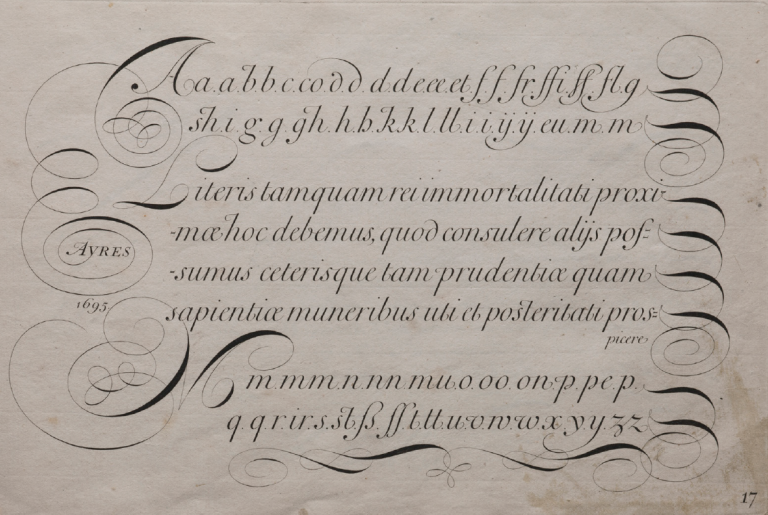 Aa.a.b.b.c.co.d.d.d.d.e.ee.et ſ.ſ.fr.ffi.ff.fl.g
sh.i.g.g.gh.h.h.k.k.l.ll.i.i.ÿ.ÿ.eu.m.m
Literis tamquam rei immortalitati proxi-
-mæ hoc debemus, quod consulere alijs poſ-
-sumus ceterisque tam prudentiæ quam
sapientiæ muneribus uti et posteritati pros=
picere
AYRES
1695
M m m m.n.n n mu.o.oo.on.p.pe p.
q.q r.ir.s.st.ß.ſſ.t.tt.u.v.w.w.x y y.z z
17